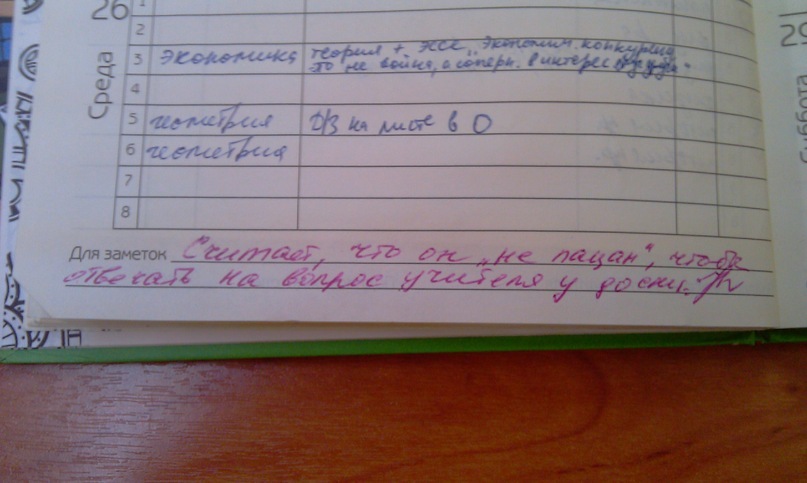 26
Среда
1
2
3 экономика теория + эссе „Экономич. конкуренц.
это не война, а соперн. в интересах друг друга“
4
5 геометрия Д/З на листе в О
6 геометрия
7
8
Для заметок Считает, что он „не пацан“, чтобы
отвечать на вопрос учителя у доски.
29
Суббота